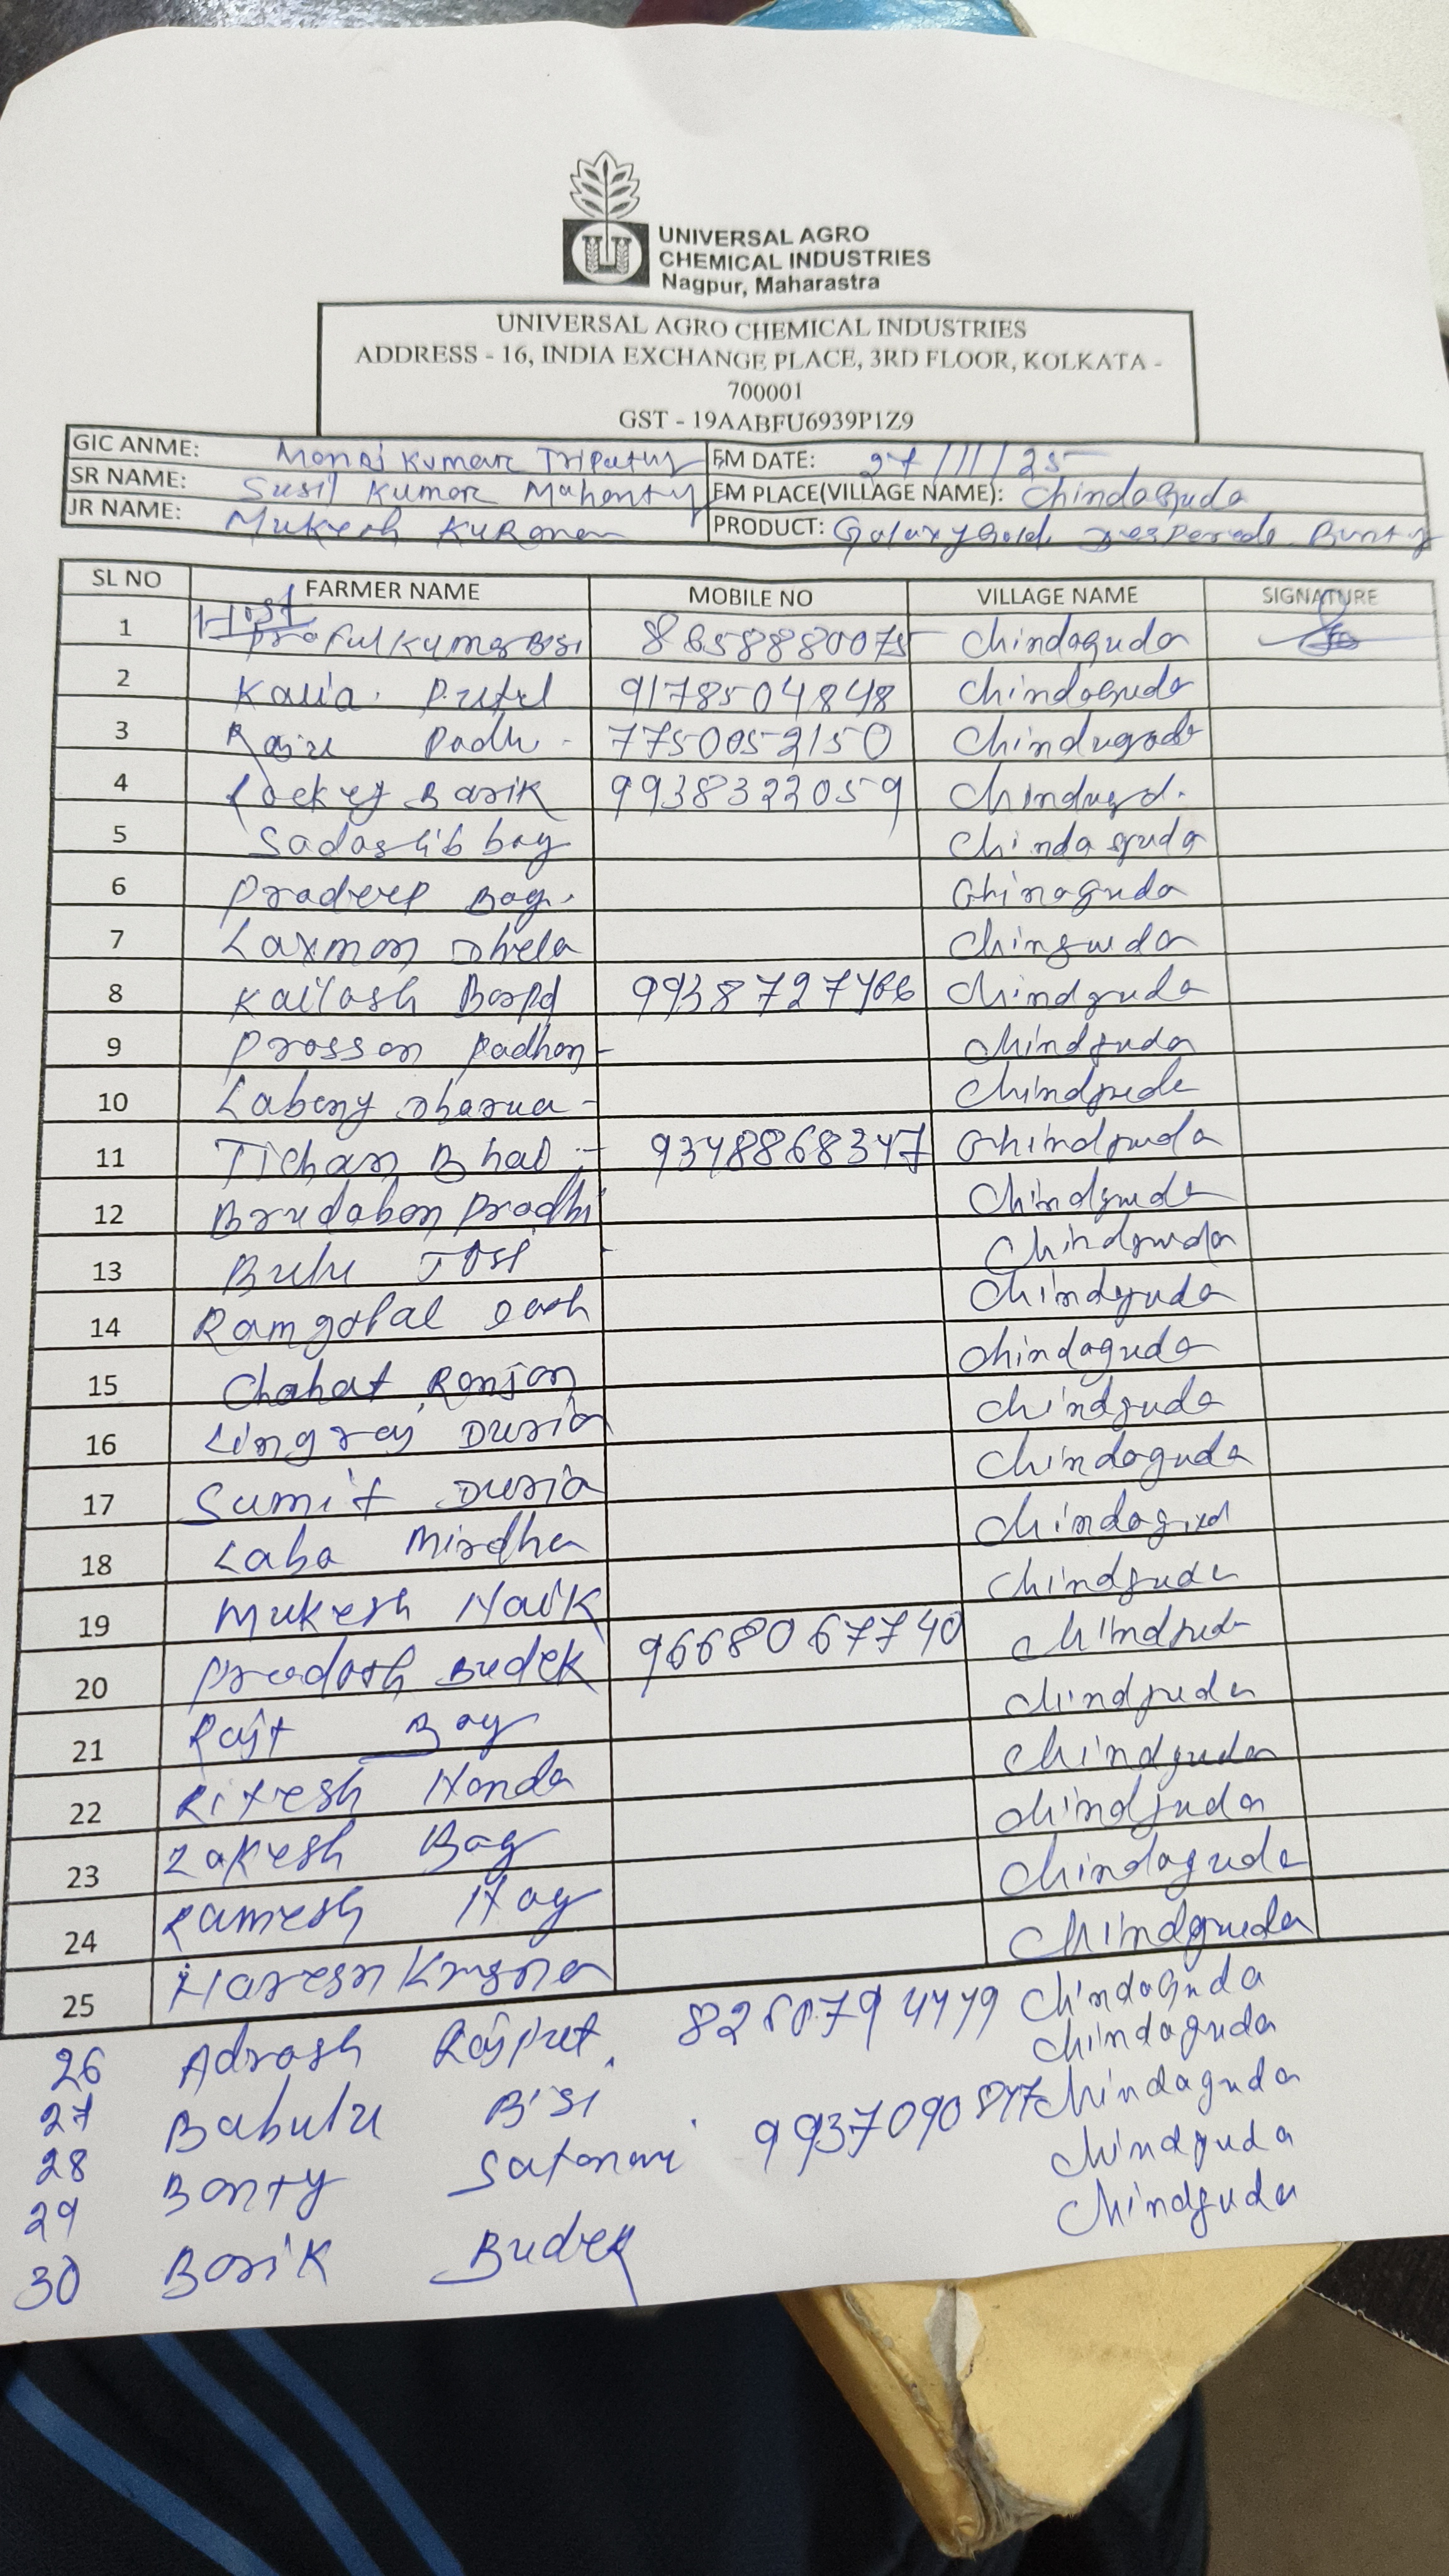 UNIVERSAL AGRO
CHEMICAL INDUSTRIES
Nagpur, Maharastra
UNIVERSAL AGRO CHEMICAL INDUSTRIES
ADDRESS - 16, INDIA EXCHANGE PLACE, 3RD FLOOR, KOLKATA -
700001
GST - 19AABFU6939P1Z9
GIC ANME: Manoj Kumar Tripathy FM DATE: 27/11/25
SR NAME: Susil Kumar Mahanty FM PLACE(VILLAGE NAME): Chindaguda
JR NAME: Mukesh PRODUCT: Galaxy Gold, Bunty
SL NO FARMER NAME MOBILE NO VILLAGE NAME SIGNATURE
Host
1 Praful Kumar Bisi 8658880075 Chindaguda
2 Kalia 9178504848 Chindaguda
3 Raju Padh 7750052150
4 Rocky Barik 9938322059
5 Sadashib bag Chindaguda
6 Pradeep Bag. Chinaguda
7 Laxman Dhela Chinguda
8 Kailash 9938727466 Chindguda
9 Prossan Padhan - Chindguda
10 Chindguda
11 Tichan Bhal :- 9348868347 Chindguda
12 Brudabon Pradhi Chindguda
13 Bulu Josi Chindguda
14 Ramgopal Dash Chindguda
15 Chahat Ranjan Chindaguda
16 Lingraj Duria Chindguda
17 Sumit Duria Chindaguda
18 Laba Mirdha Chindagud
19 Mukesh Naik Chindguda
20 Pradosh Budek 9668067740 Chindguda
21 Rajt Bag Chindguda
22 Ritesh Nanda Chindguda
23 Rakesh Bag Chindguda
24 Ramesh Nag Chindaguda
25 Chindguda
26 Adrash Rajput. Chindaguda
27 Babulu Bisi Chindaguda
28 Bonty Satnami 9937090847 Chindaguda
29 Chindguda
30 Barik Budek Chindguda